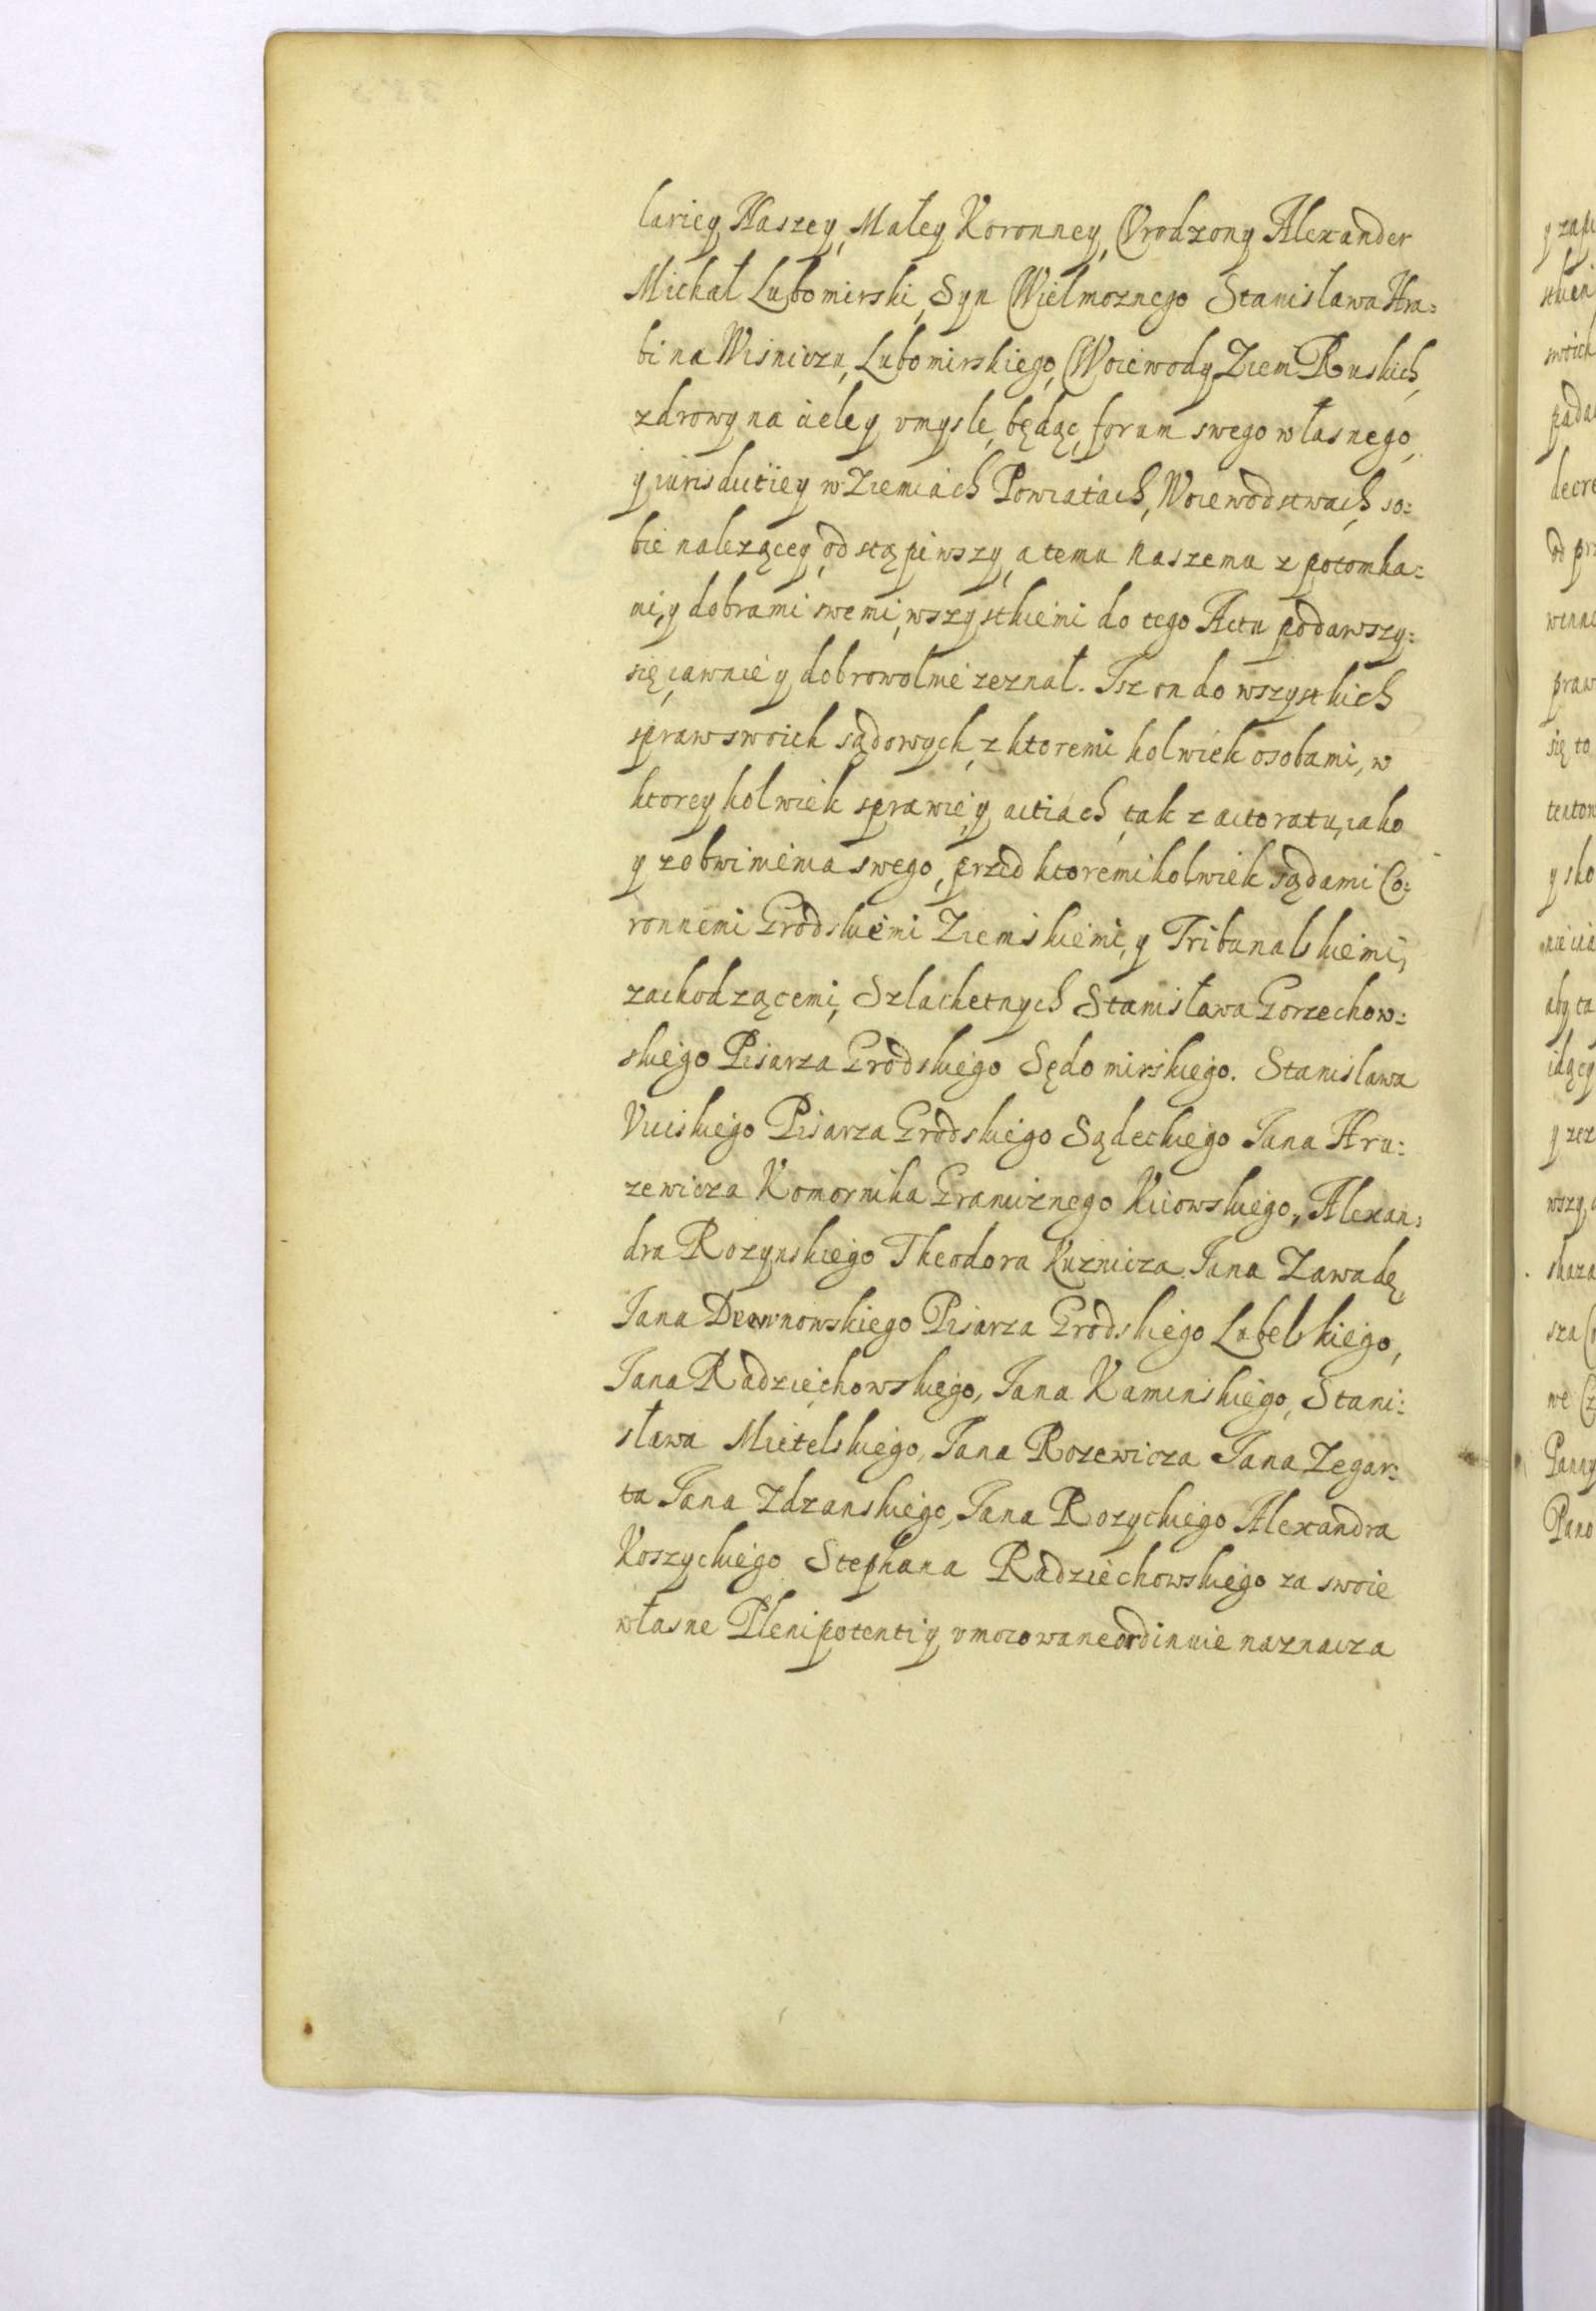 lariey Naszey, Małey Koronney, Vrodzony Alexander
Michał Lubomirski, Syn Wielmoznego Stanisława Hra:
bi na Wisniczu, Lubomirskiego, Woiewody Ziem Ruskich,
zdrowy na ciele y vmysle, będąc, forum swego własnego,
y iurisdictiey w Ziemiach Powiatach, Woiewodstwach so:
bie nalezącey, odstąpiwszy, a temu naszemu z potomka:
mi, y dobrami swemi, wszystkiemi do tego Actu podawszy:
się, iawnie y dobrowolnie zeznał. Isz on do wszystkich
spraw swoich sądowych, z ktoremi kolwiek osobami, w
ktorey kolwiek sprawie, y actiach, tak z actoratu, iako
y z obwinienia swego, przed ktoremikolwiek sądami Co:
ronnemi Grodskiemi Ziemskiemi, y Tribunalskiemi,
zachodzącemi, Szlachetnych Stanisława Gorzechow:
skiego Pisarza Grodskiego Sędomirskiego. Stanislawa
Vciskiego Pisarza Grodskiego Sądeckiego Jana Hru:
zewicza Komornika Granicznego Kiiowskiego, Alexan:
dra Rozynskiego Theodora Kuznicza Jana Zawadę,
Jana Drewnowskiego Pisarza Grodskiego Lubelskiego,
Jana Radziechowskiego, Jana Kaminskiego, Stani:
sława Mietelskiego, Jana Rozewicza Jana Zegar:
ta Jana Zdzanskiego, Jana Rozyckiego Alexandra
Koszyckiego Stephana Radziechowskiego za swoie
własne Plenipotenti y vmocowane ordinuie naznacza